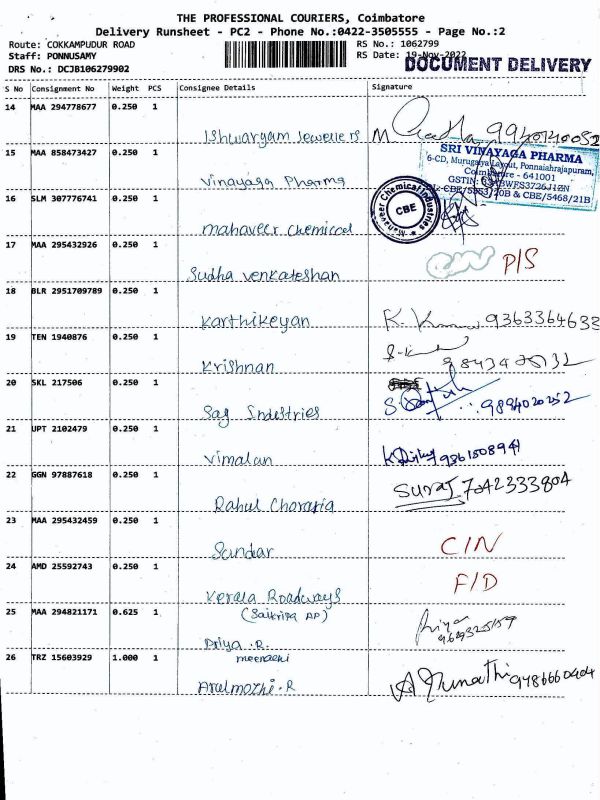 THE PROFESSIONAL COURIERS, Coimbatore
Delivery Runsheet - PC2 - Phone No.:0422-3505555 - Page No.:2
Route: COKKAMPUDUR ROAD RS No.: 1062799
Staff: PONNUSAMY RS Date: 19-Nov-2022
DRS No.: DCJB106279902 DOCUMENT DELIVERY
S No Consignment No Weight PCS Consignee Details Signature
14 MAA 294778677 0.250 1
Ishwaryam Jewellers
15 MAA 858473427 0.250 1
Vinayaga Pharma
SRI VINAYAGA PHARMA
6-CD, Murugaiya Layout, Ponnaiahrajapuram,
Coimbatore - 641001
16 SLM 307776741 0.250 1
Mahaveer Chemical
Mahaveer Chemical Industries
CBE
17 MAA 295432926 0.250 1
Sudha Venkateshan P/S
18 BLR 2951709789 0.250 1
Karthikeyan 9363364633
19 TEN 1940876 0.250 1
Krishnan
20 SKL 217506 0.250 1
Sag Industries 9894020252
21 UPT 2102479 0.250 1
Vimalan 9361508941
22 GGN 97887618 0.250 1
Rahul Choraria Suraj 7042333804
23 MAA 295432459 0.250 1
Sundar C/N
24 AMD 25592743 0.250 1
Kerala Roadways F/D
25 MAA 294821171 0.625 1
(Saikripa AP)
Priya .R. Priya
26 TRZ 15603929 1.000 1
meenachi
Arulmozhi.R 9486660404